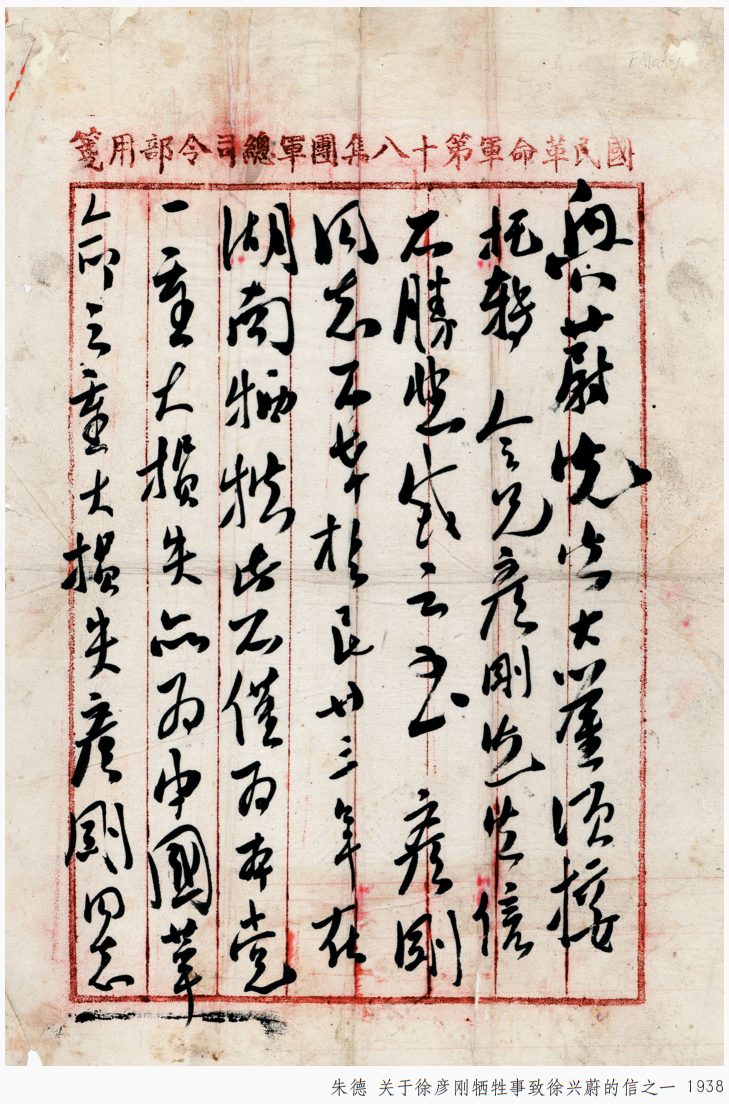 國民革命軍第十八集團軍總司令部用箋
興蔚先生大鑒頃接
托轉 令兄彥剛先生信
不勝悲感之至 彥剛
同志不幸於民廿三年在
湖南牺牲此不僅为本党
一重大損失亦为中國革
命之重大損失彥剛同志
朱德 关于徐彦刚牺牲事致徐兴蔚的信之一 1938